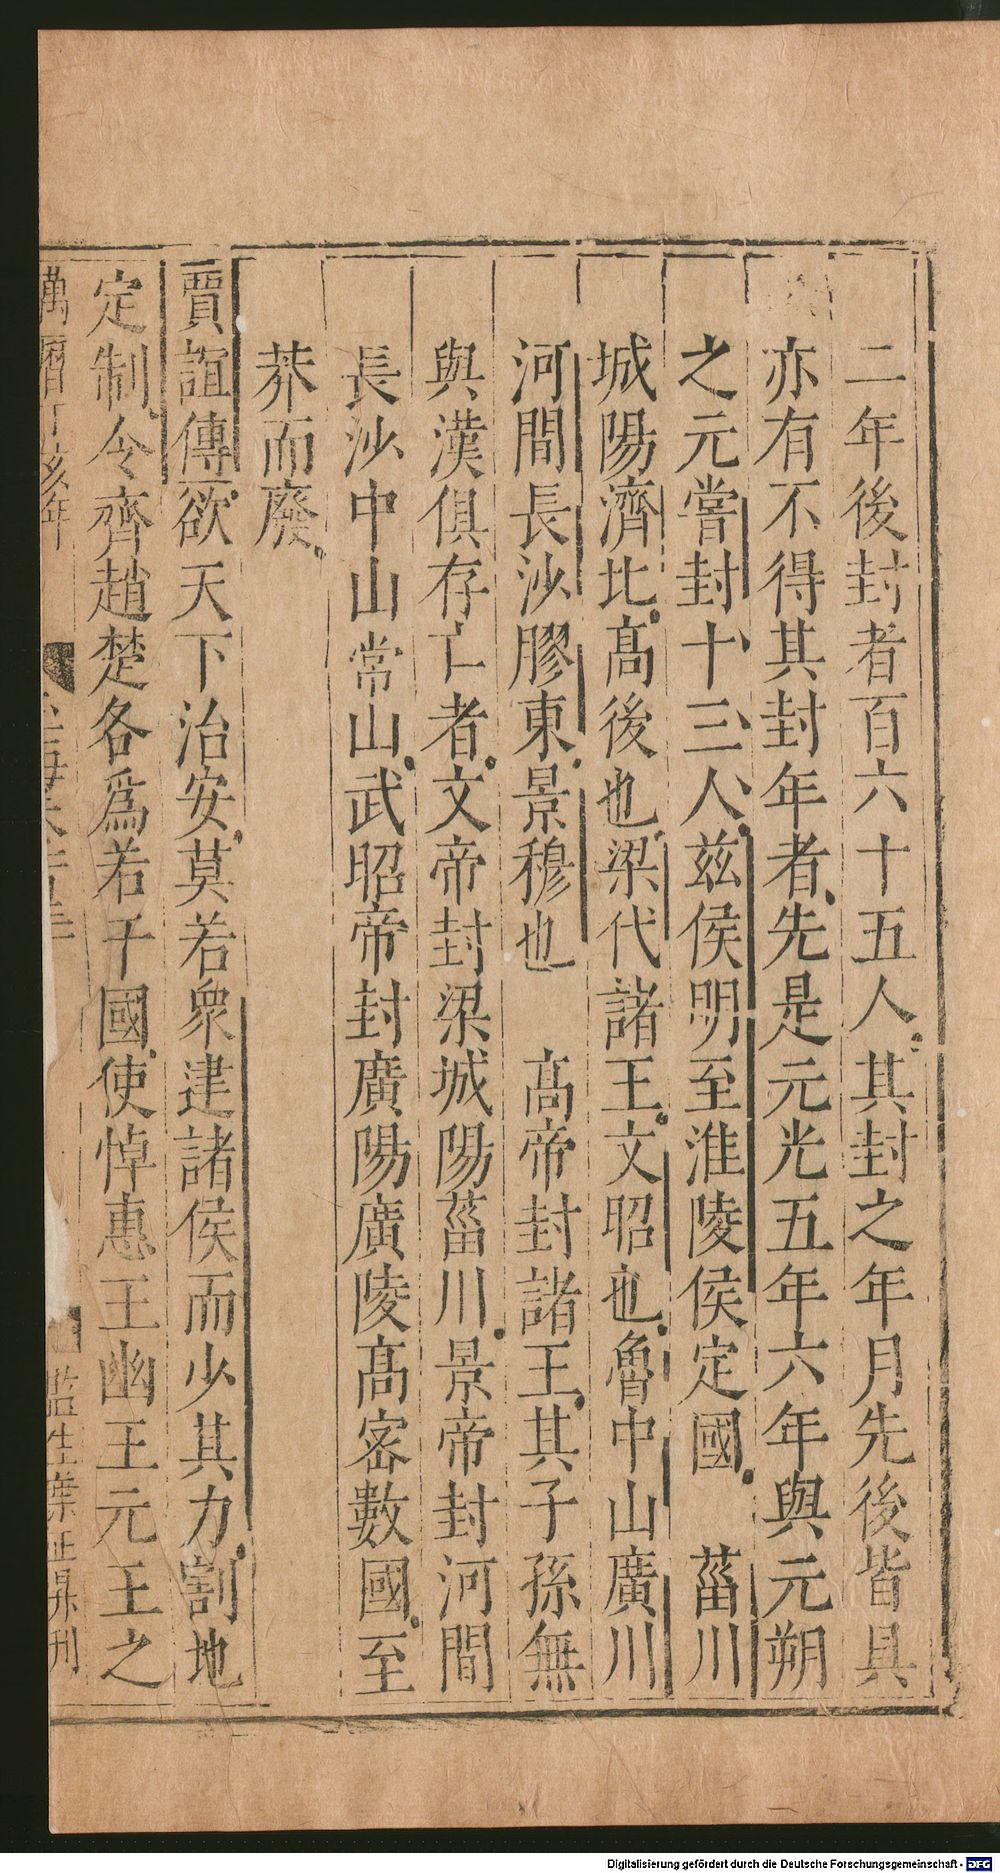 二年後封者百六十五人其封之年月先後皆具
亦有不得其封年者先是元光五年六年與元朔
之元嘗封十三人茲侯明至淮陵侯定國　菑川
城陽濟北高後也梁代諸王文昭也魯中山廣川
河間長沙膠東景穆也　高帝封諸王其子孫無
與漢俱存亡者文帝封梁城陽菑川景帝封河間
長沙中山常山武昭帝封廣陽廣陵高密數國至
莽而廢
賈誼傳欲天下治安莫若衆建諸侯而少其力割地
定制令齊趙楚各爲若干國使悼惠王幽王元王之
萬曆丁亥年
監生葉正鼎刊
Digitalisierung gefördert durch die Deutsche Forschungsgemeinschaft - DFG